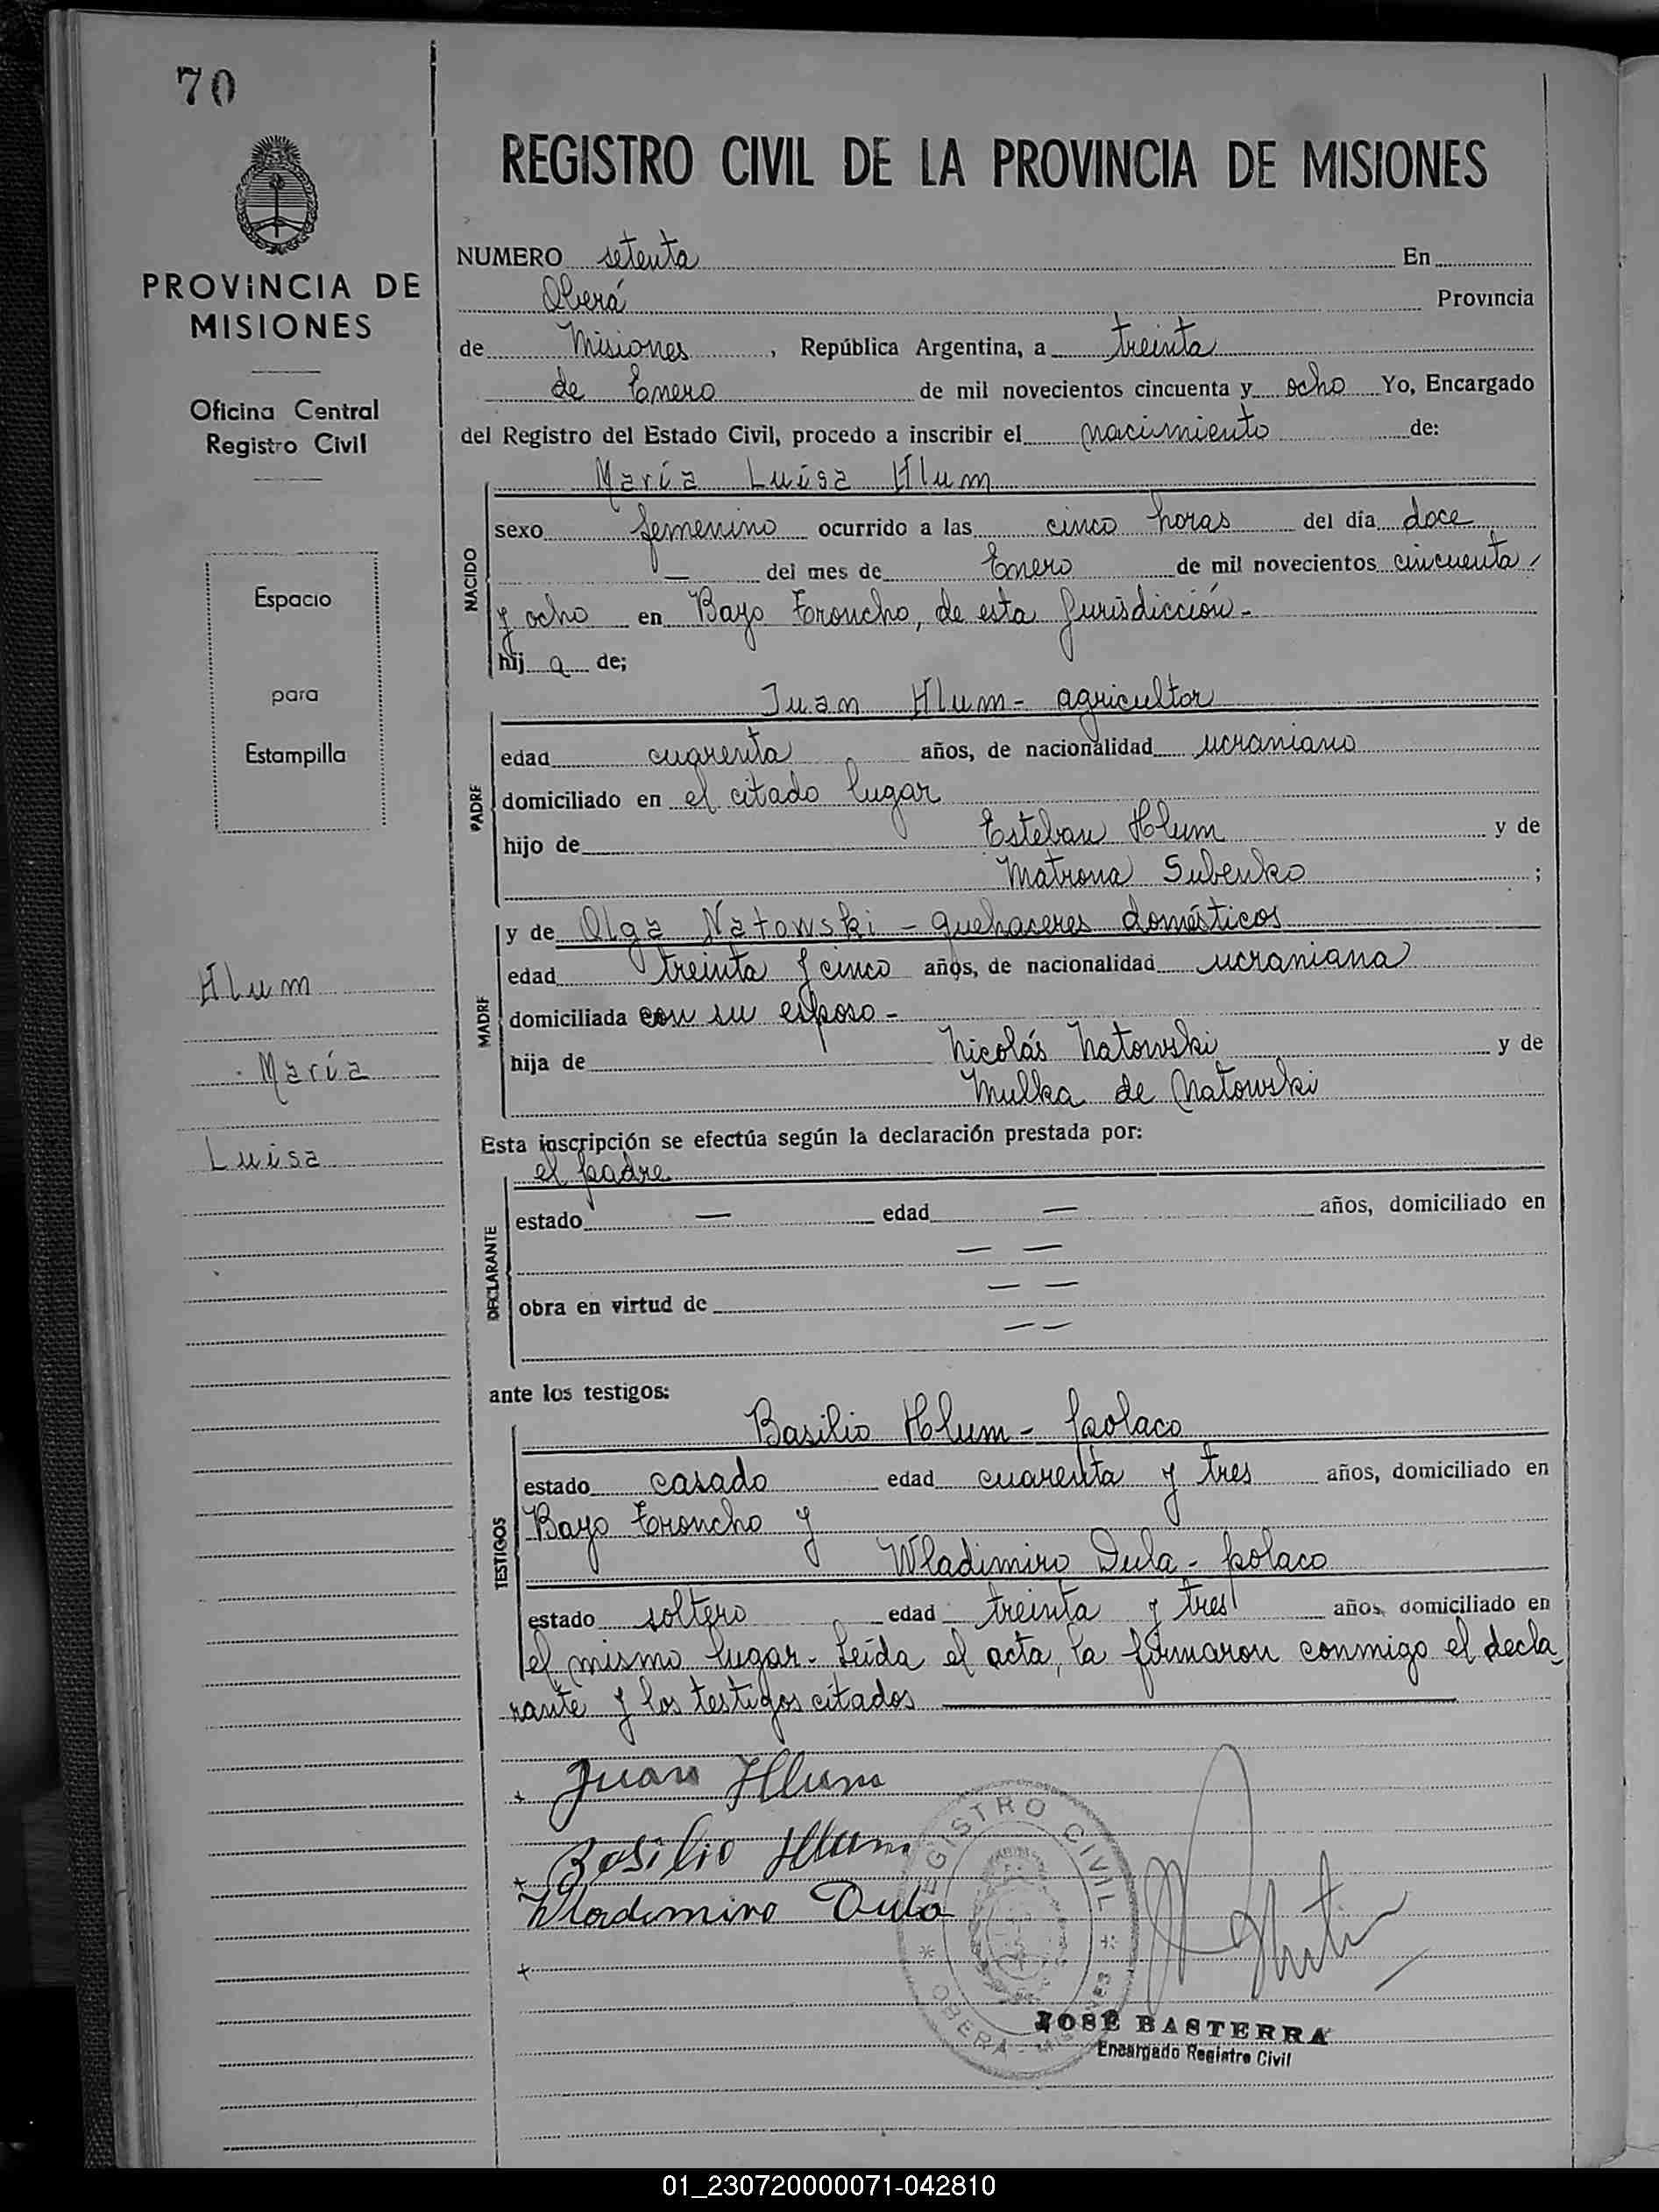 70
REGISTRO CIVIL DE LA PROVINCIA DE MISIONES
PROVINCIA DE
MISIONES
Oficina Central
Registro Civil
Espacio
para
Estampilla
Hlum
María
Luisa
NUMERO setenta En
Oberá Provincia
de Misiones, República Argentina, a treinta
de Enero de mil novecientos cincuenta y ocho Yo, Encargado
del Registro del Estado Civil, procedo a inscribir el nacimiento de:
María Luisa Hlum
NACIDO
sexo femenino ocurrido a las cinco horas del día doce
— del mes de Enero de mil novecientos cincuenta
y ocho en Bayo Troncho, de esta Jurisdicción-
hij a de;
Juan Hlum- agricultor
PADRE
edad cuarenta años, de nacionalidad ucraniano
domiciliado en el citado lugar
hijo de Esteban Hlum y de
Matrona Subenko ;
y de Olga Natowski - quehaceres domésticos
MADRE
edad treinta y cinco años, de nacionalidad ucraniana
domiciliada con su esposo -
hija de Nicolás Natowski y de
Mulka de Natowski
Esta inscripción se efectúa según la declaración prestada por:
el padre
DECLARANTE
estado — edad — años, domiciliado en
— —
— —
obra en virtud de
— —
ante los testigos:
Basilio Hlum- polaco
TESTIGOS
estado casado edad cuarenta y tres años, domiciliado en
Bayo Troncho y
Wladimiro Dula - polaco
estado soltero edad treinta y tres años, domiciliado en
el mismo lugar- Leída el acta, la firmaron conmigo el decla
rante y los testigos citados
Juan Hlum
Basilio Hlum
Wladimiro Dula
REGISTRO CIVIL
OBERA - MISIONES
JOSÉ BASTERRA
Encargado Registro Civil
01_230720000071-042810